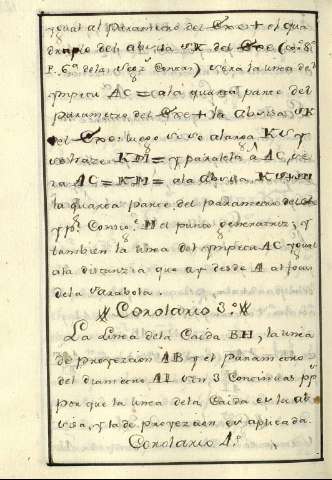 ygual al Parametro del Exe + el qua
druplo del abusisa VK del Exe
P. 6ª dela Conica) será la linea del
impetu AC = ala quarta parte del
parametro del Exe + la abcisa VK
del Exe: luego si se alarga KV y
se haze KM = y paralela a AC, se
ra AC = KM = ala abcisa KV + VM
la quarta parte del parametro del
M el punto generatriz; y
tambien la linea del impetu AC ygual
ala distanzia que ay desde A al focus
dela Parabola.
Corolario 3.º
La Linea dela Caida BH, la linea
de proyeczion AB y el parametro
del diametro AI son 3 Continuas pp
por que la linea dela Caida es la ab
sisa, y la de proyeczion su aplicada.
Corolario 4.º